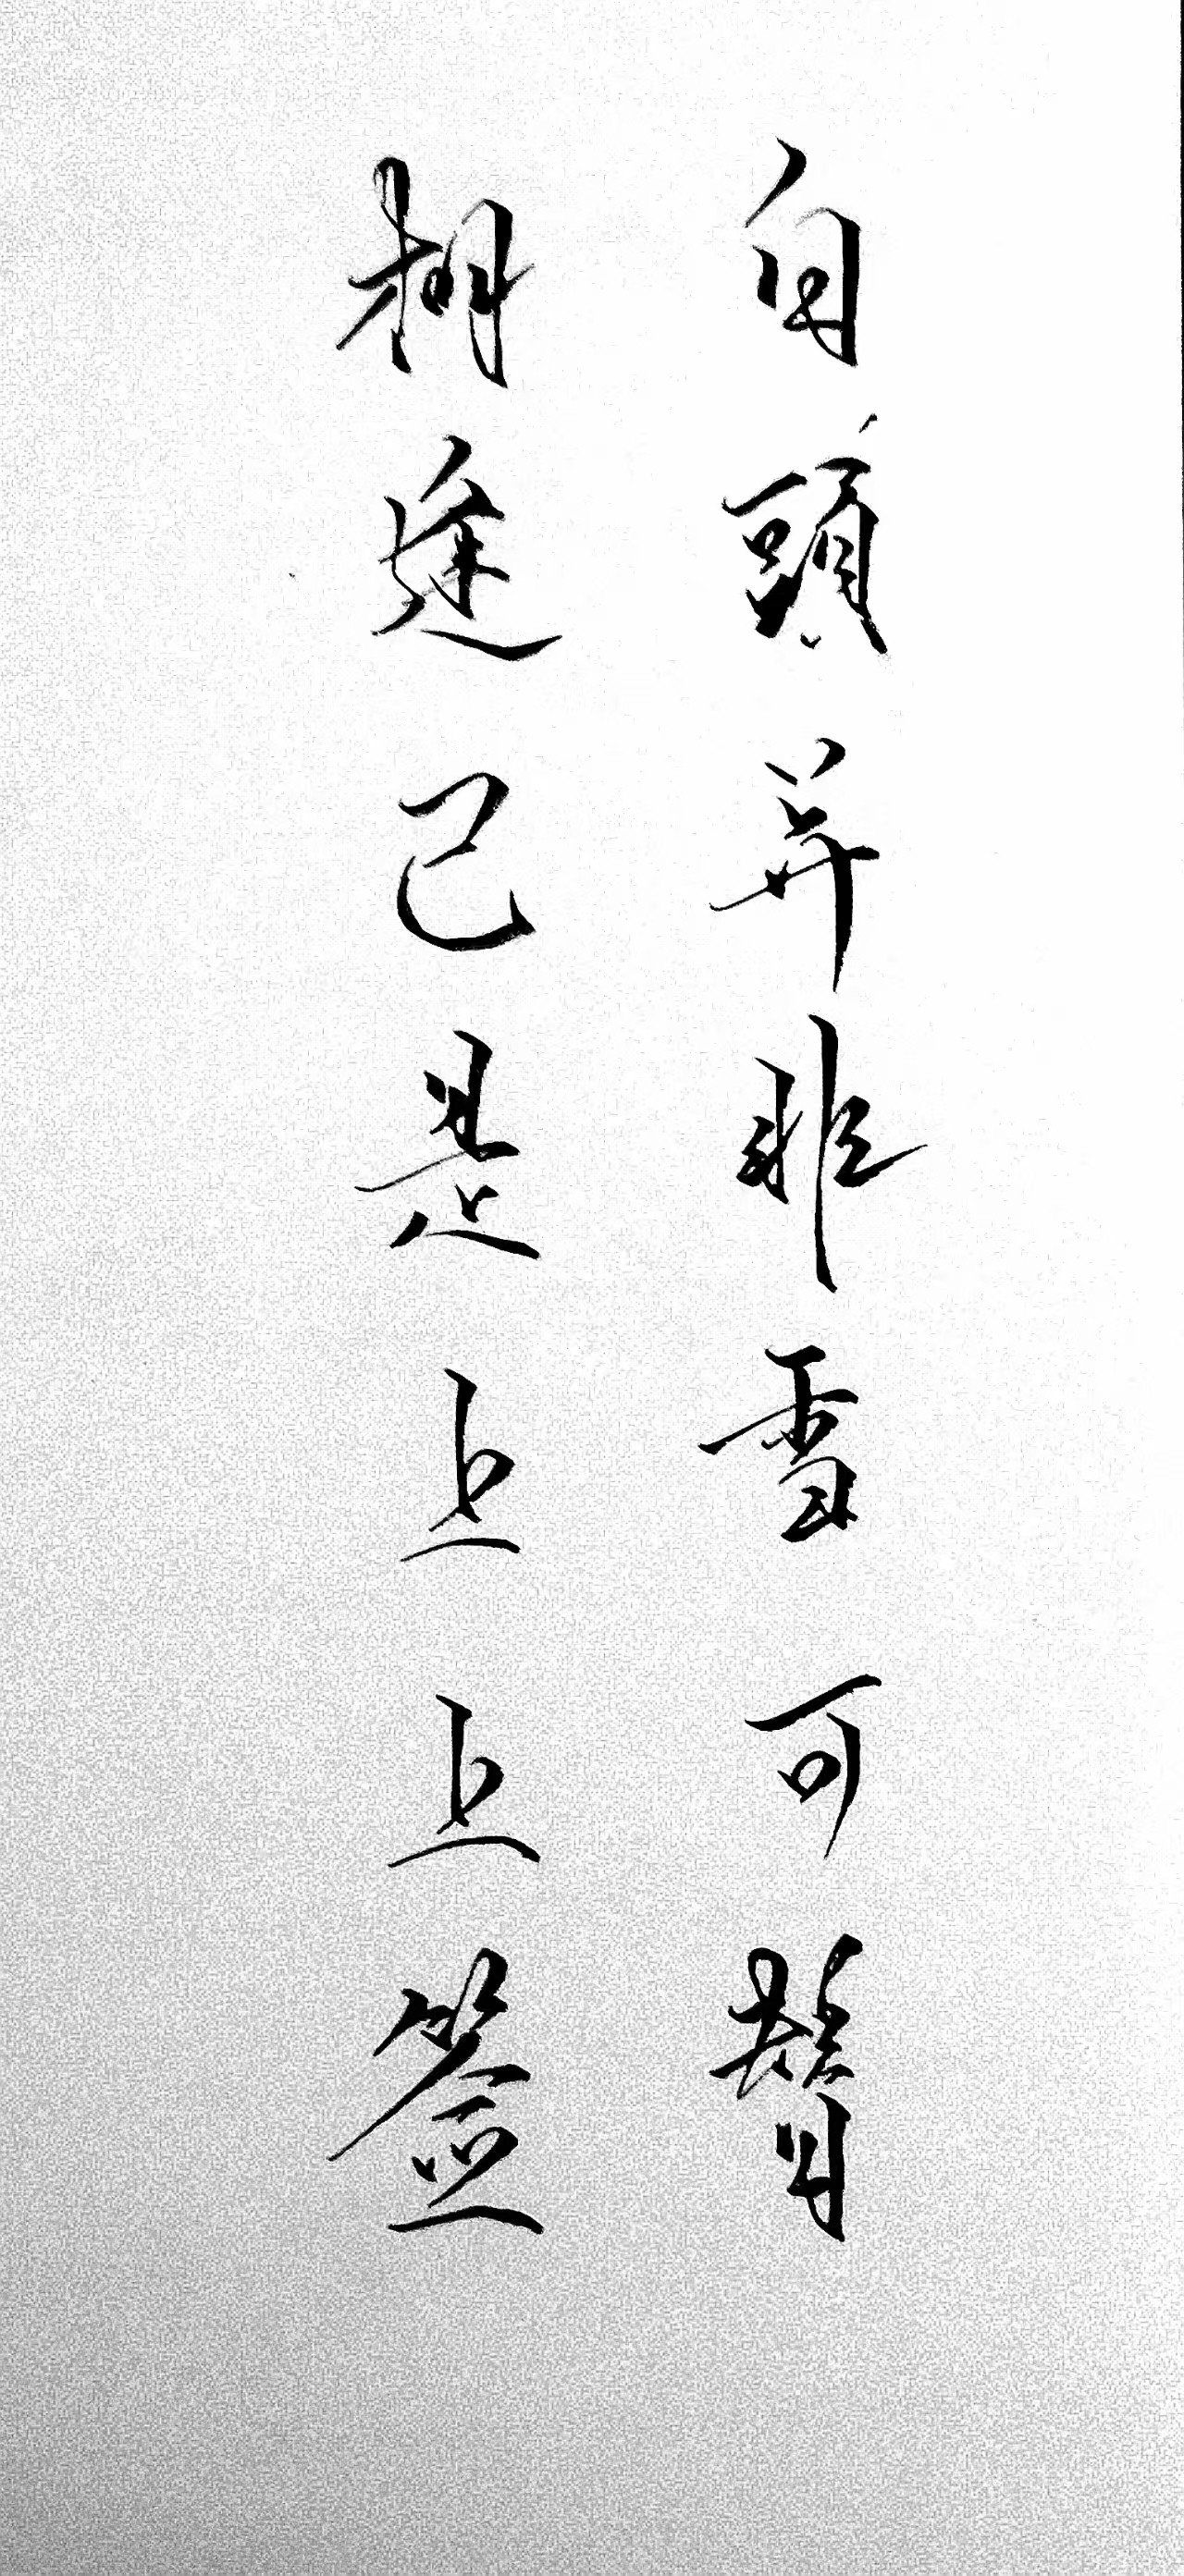 白頭并非雪可替
相逢已是上上簽